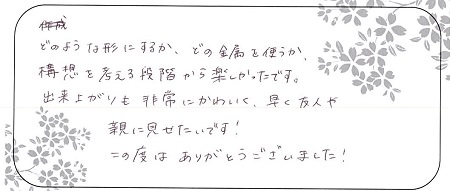 どのような形にするか、どの金属を使うか、
構想を考える段階から楽しかったです。
出来上がりも非常にかわいく、早く友人や
親に見せたいです!
この度はありがとうございました!